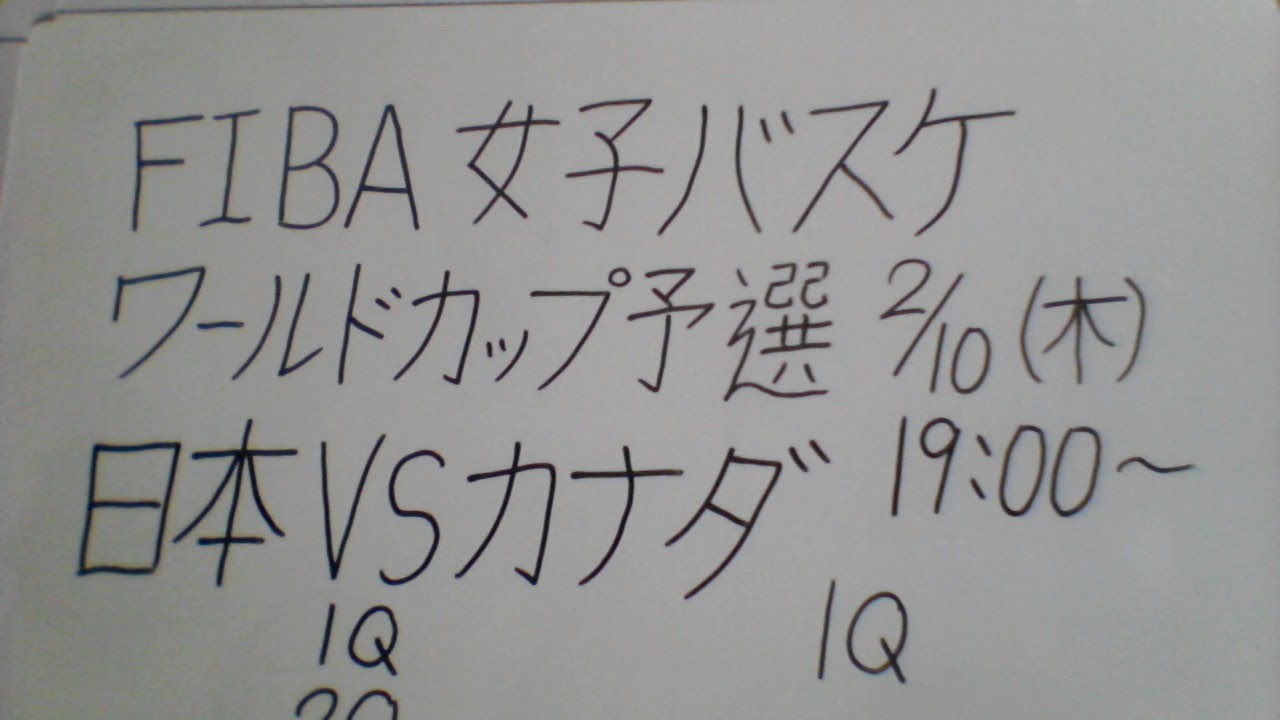 FIBA 女子バスケ
ワールドカップ予選 2/10(木)
日本VSカナダ 19:00~
1Q 1Q
2Q